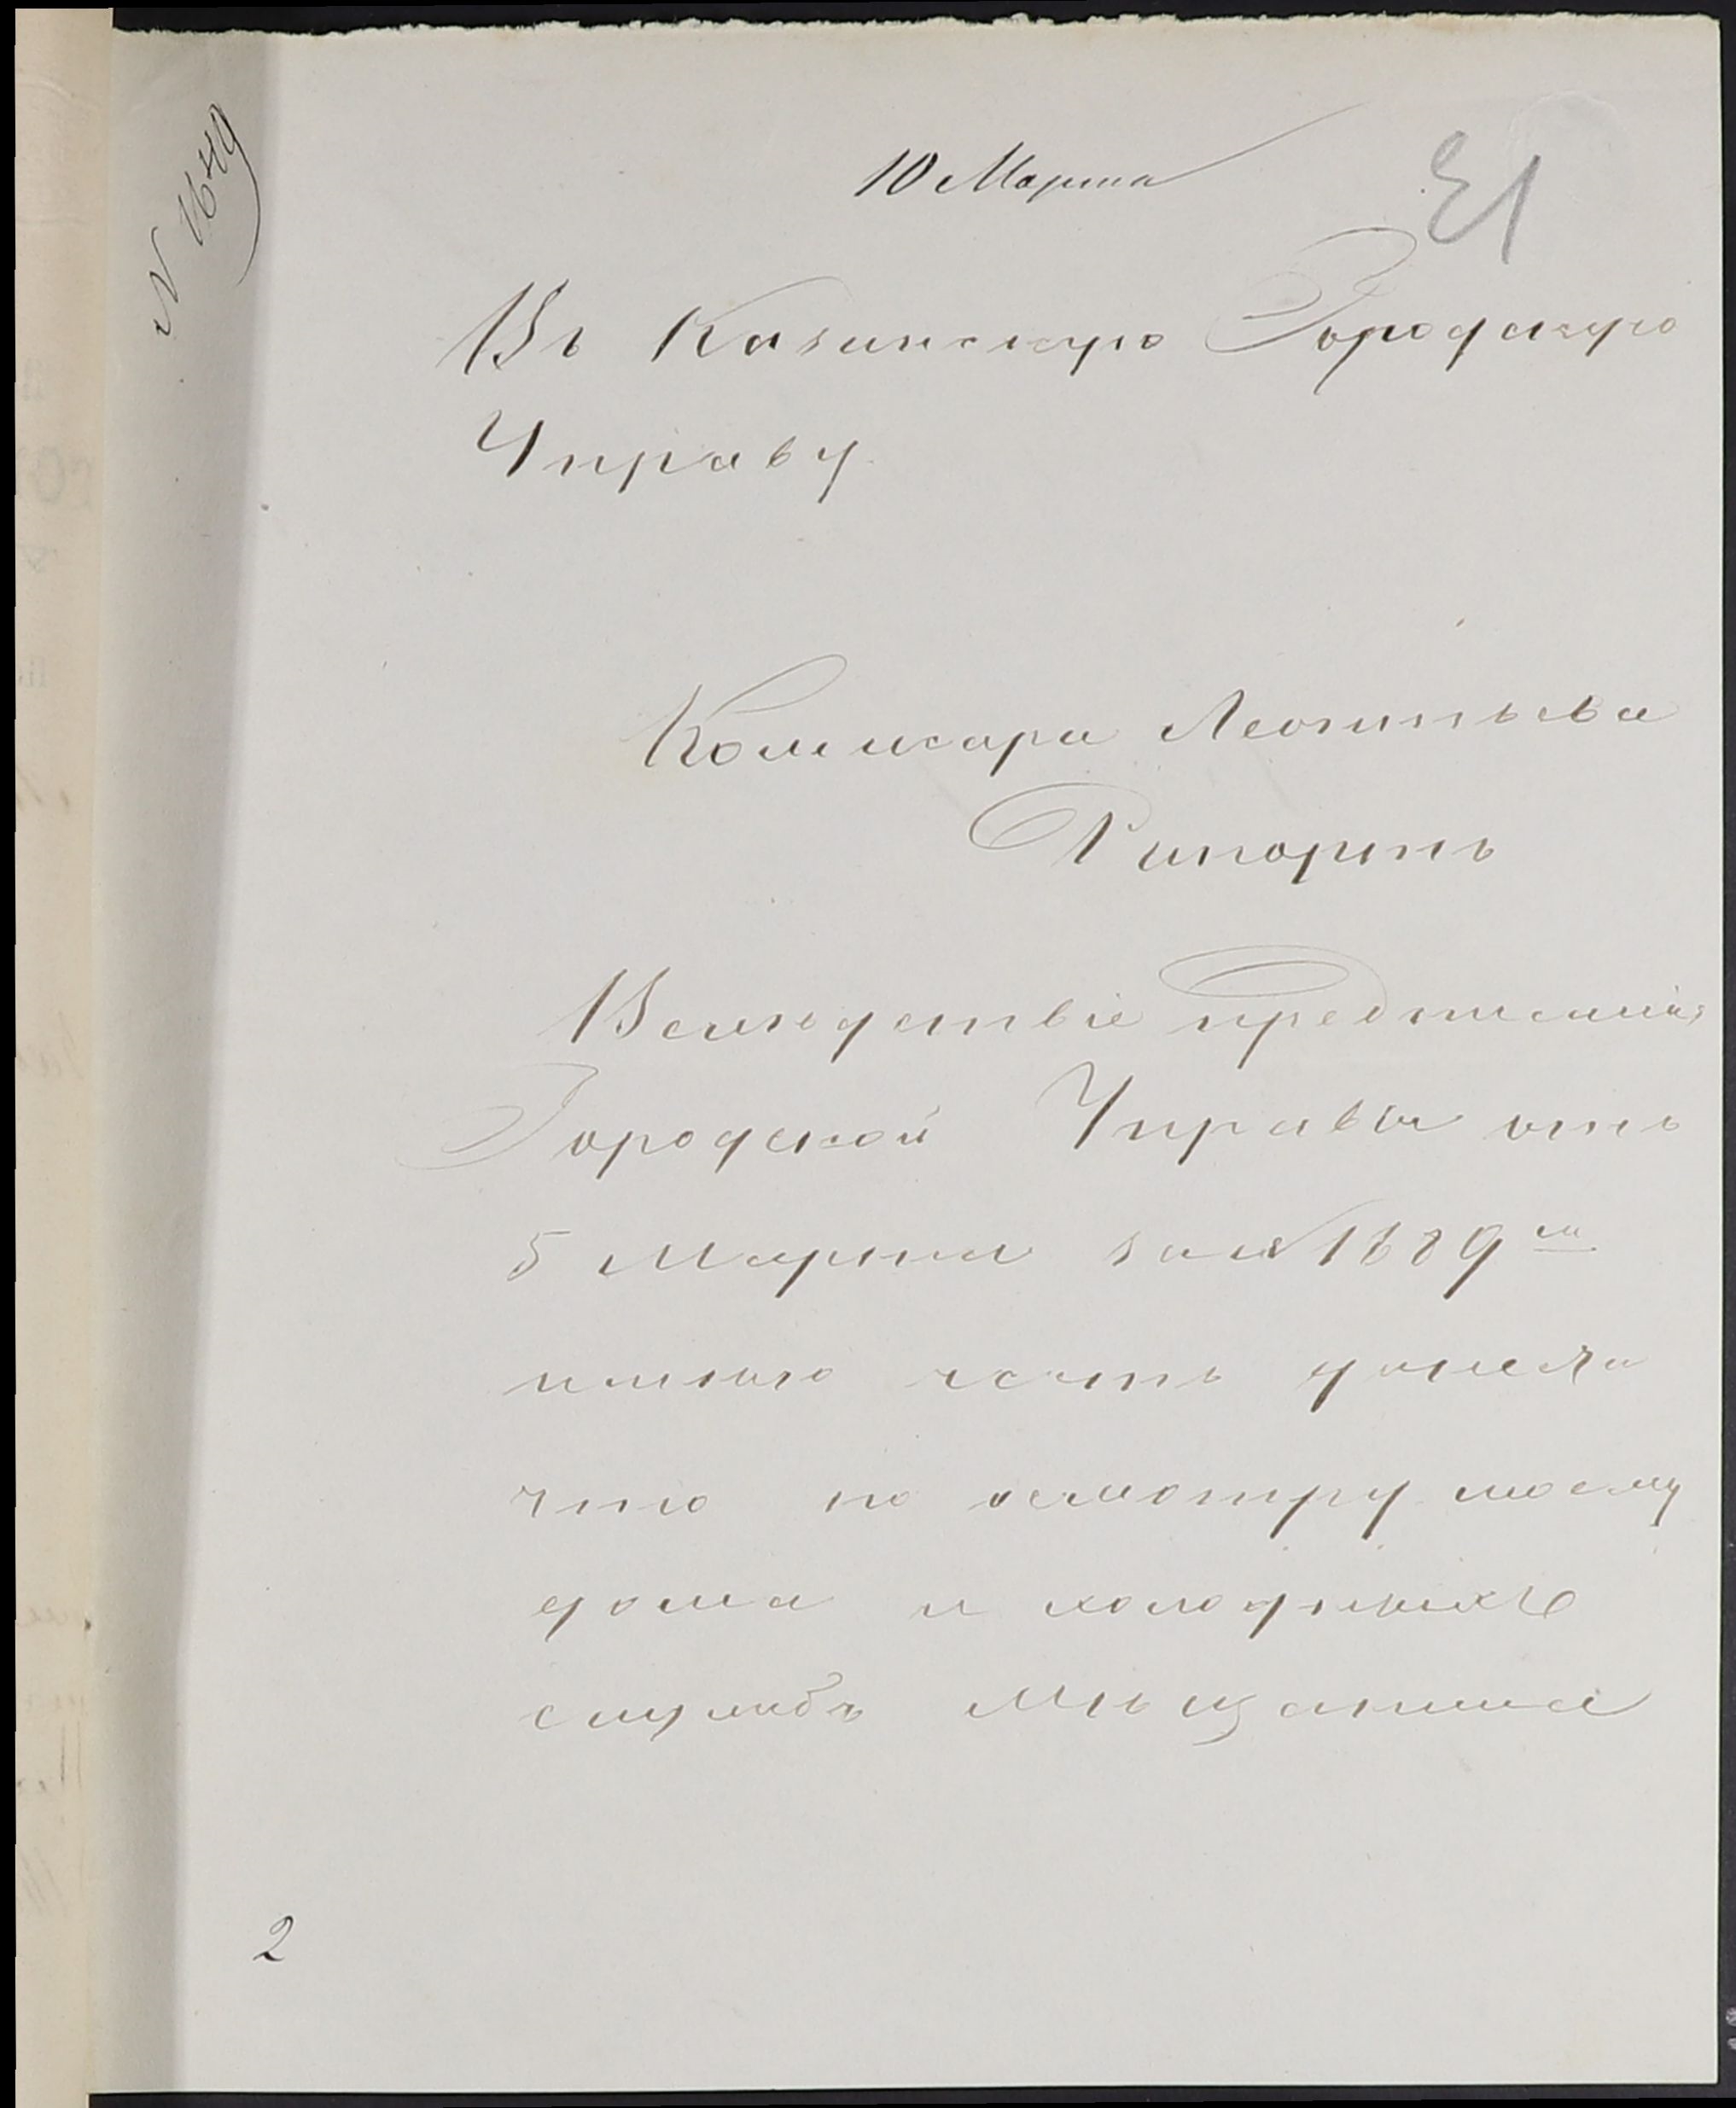 N 1649
10 Марта
31
Въ Казанскую Городскую
Управу
Комисара Леонтьева
Рапортъ
Вслѣдствіе предписанія
Городской Управы отъ
5 Марта за № 1889 м
имѣю честь донести
что по осмотру моему
дома и холодныхъ
службъ Мѣщанина
2